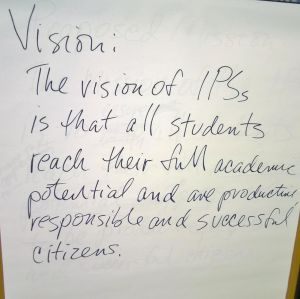 Vision:
The vision of IPSs
is that all students
reach their full academic
potential and are productive,
responsible and successful
citizens.